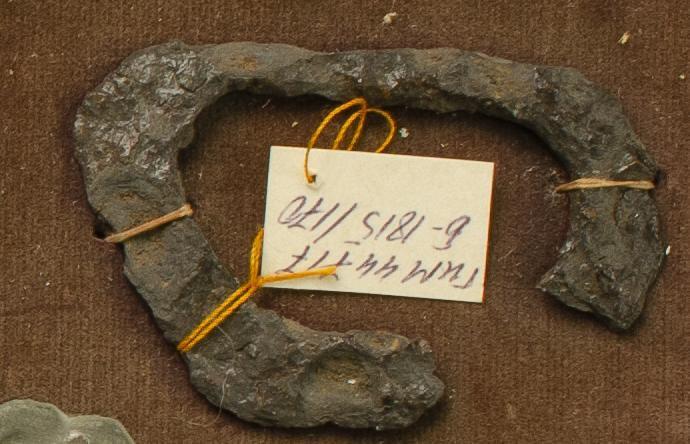 ГИМ 44717
Б-1815/170